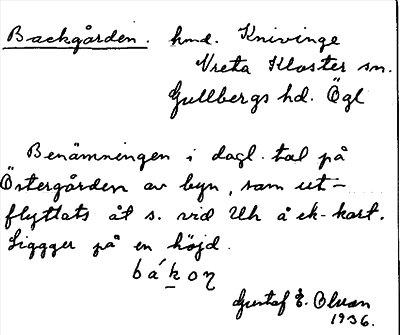 Backgården. hmd. Knivinge
Vreta Kloster sn.
Gullbergs hd. Ögl
Benämningen i dagl. tal på
Östergården av byn, som ut-
flyttats åt s. vid Uh å ek-kart.
Liggger på en höjd.
bákoŋ
Gustaf E. Olsson
1936.